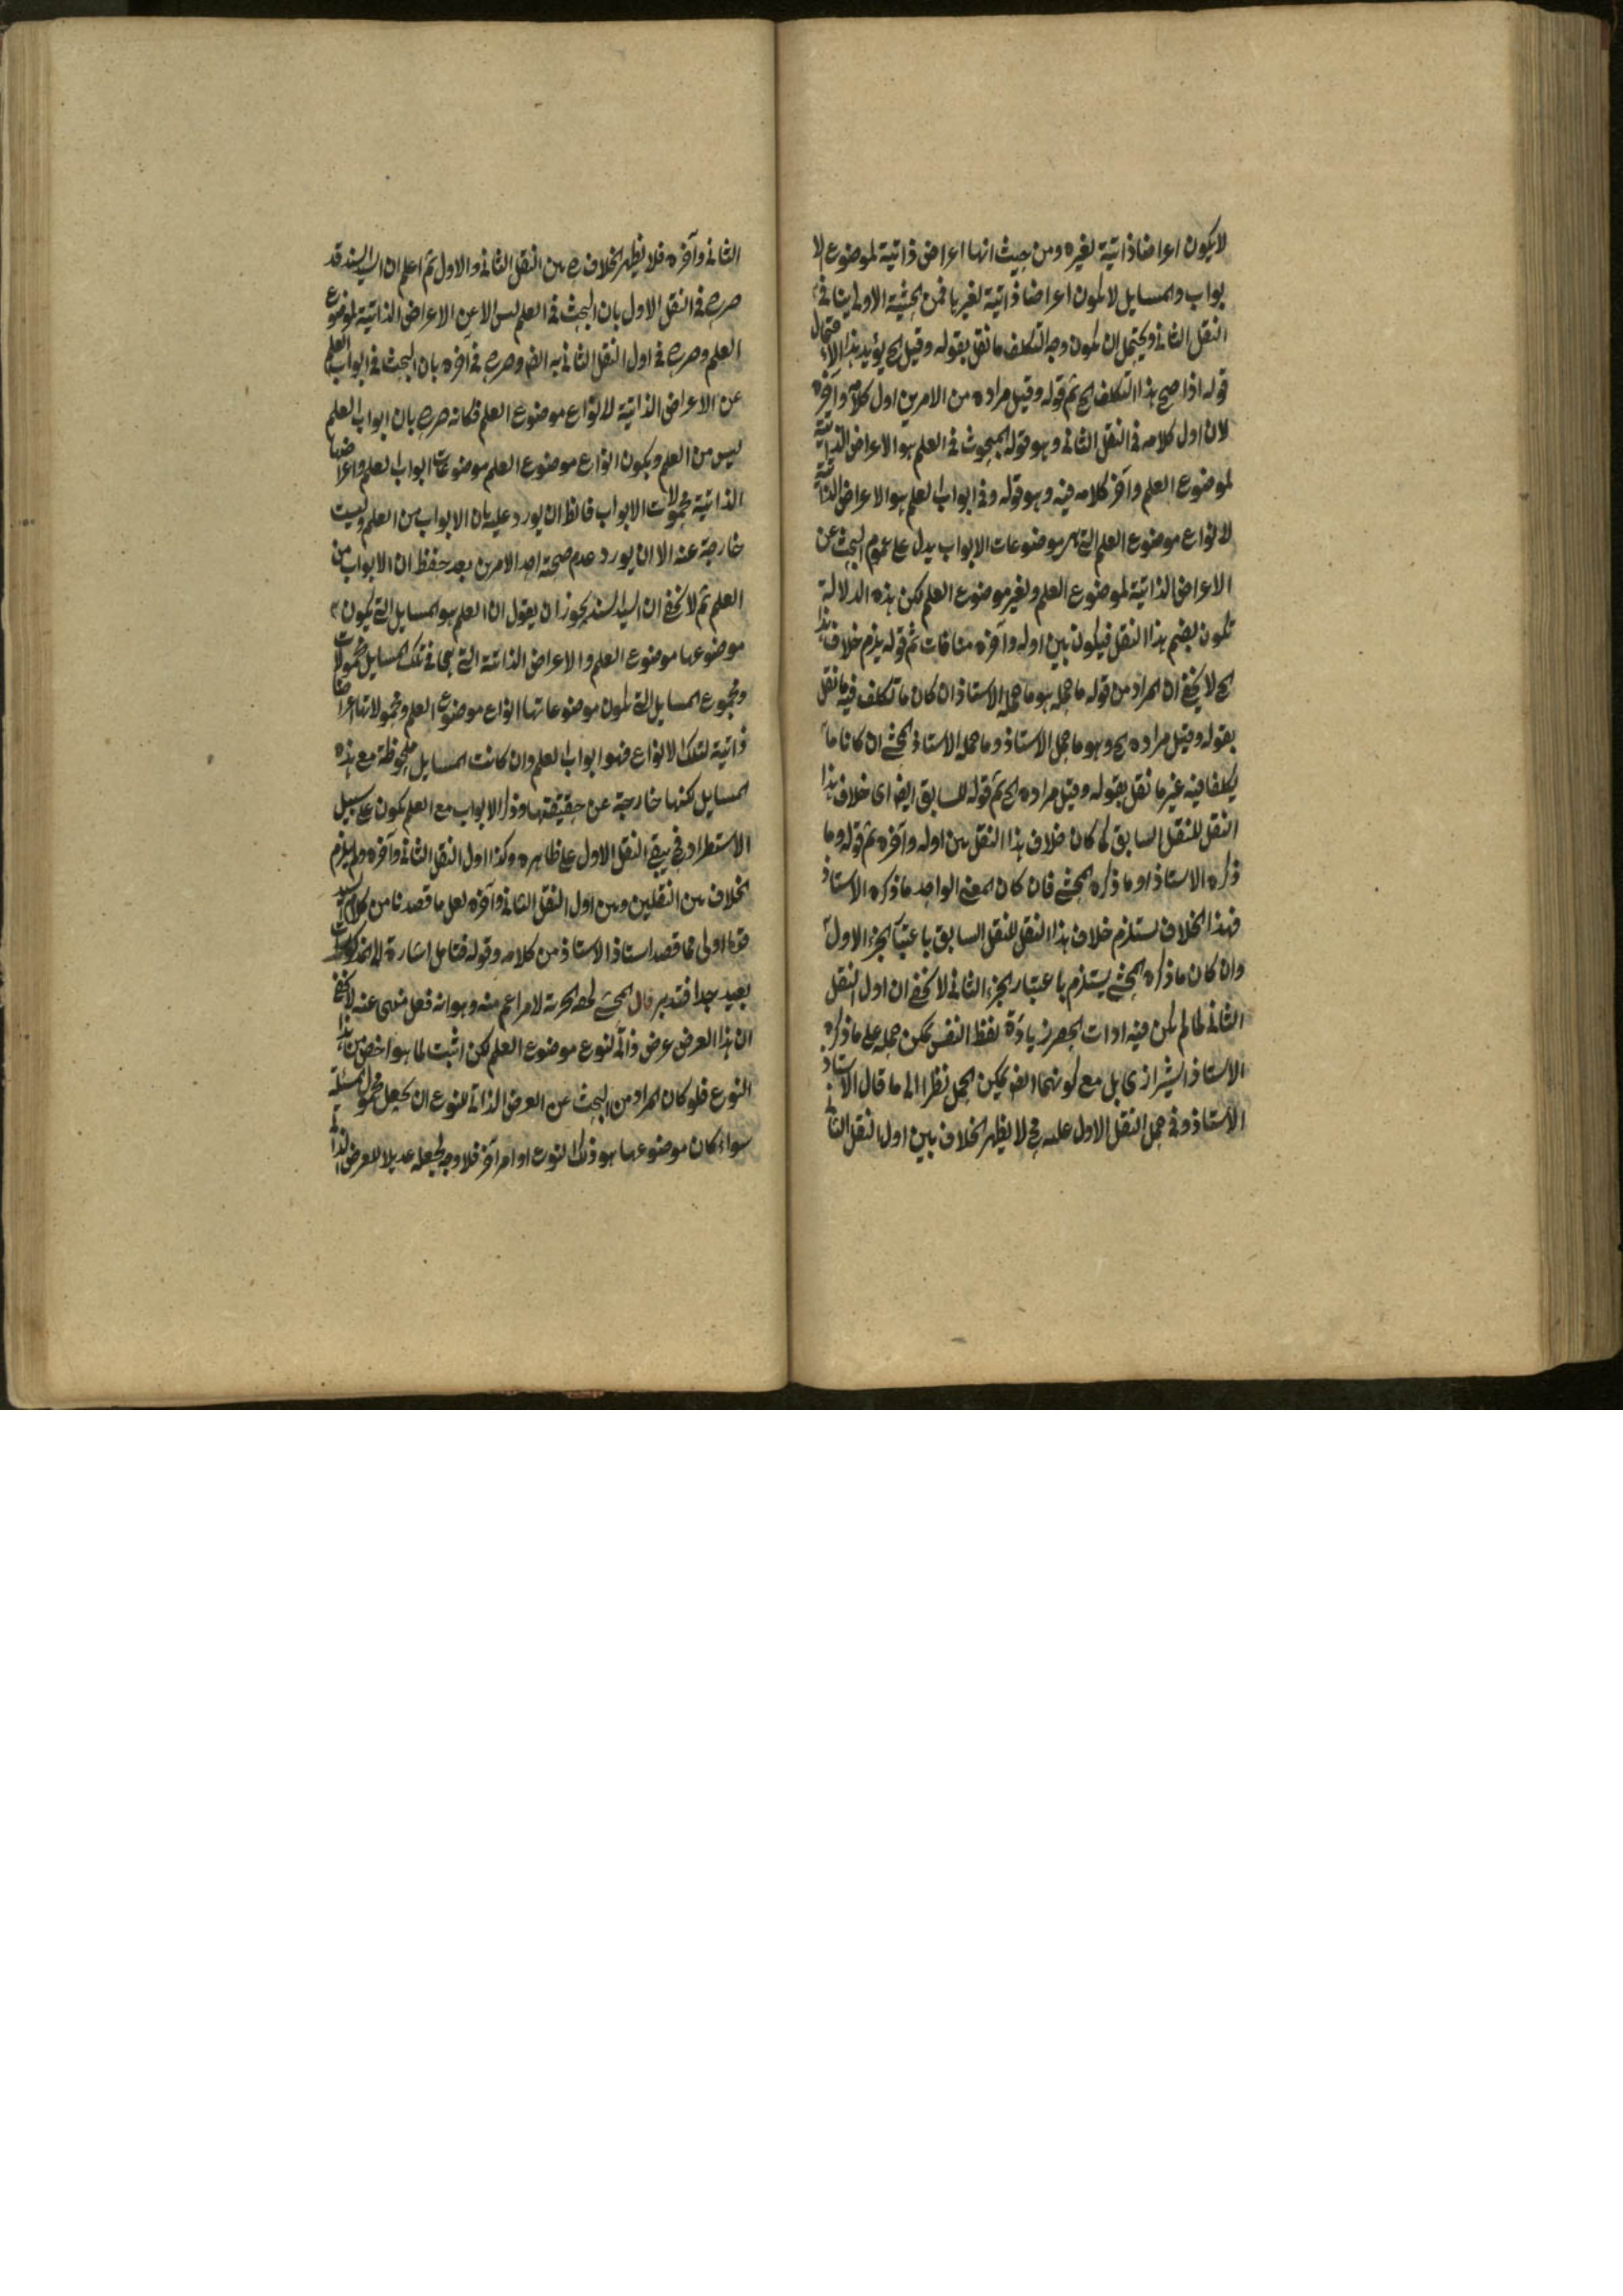 لا يكون اعراضا ذاتية لغيره ومن حيث انها اعراض ذاتية لموضوع الا
بواب والمسايل لا يكون اعراضا ذاتية لغيرها فمن الحيثية الاولى ينافى
النقل الثانى ويحتمل ان يكون وجه التكلف ما نقل بقوله وقيل الخ يؤيد هذا الاحتمال
قوله اذا صح هذا التكلف الخ ثم قوله وقيل مراده من الامرين اول كلامه وآخره
لان اول كلامه فى النقل الثانى وهو قوله المبحوث فى العلم هو الاعراض الذاتية
لموضوع العلم وآخر كلامه فيه وهو قوله وفى ابواب العلم هو الاعراض الذاتية
لانواع موضوع العلم التى هى موضوعات الابواب يدل على عموم البحث عن
الاعراض الذاتية لموضوع العلم ولغير موضوع العلم لكن هذه الدلالة
تكون بضم هذا النقل فيكون بين اوله وآخره منافات ثم قوله يلزم خلاف هذا
الخ لا يخفى ان المراد من قوله ما حمله هو ما حمله الاستاذ ان كان ما تكلف فيه ما نقل
بقوله وقيل مراده الخ وهو ما حمل الاستاذ وما حمله الاستاذ المحشى ان كانا ما
يكلفا فيه غير ما نقل بقوله وقيل مراده الخ ثم قوله للسابق ايضا اى خلاف هذا
النقل للنقل السابق كما كان خلاف هذا النقل بين اوله وآخره ثم قوله وما
ذكره الاستاذ او ما ذكره المحشى فان كان المعنى الواحد ما ذكره الاستاذ
فهذا الخلاف يستلزم خلاف هذا النقل للنقل السابق باعتبار الجزء الاول
وان كان ما ذكره المحشى يستلزم باعتبار الجزء الثانى لا يخفى ان اول النقل
الثانى لما لم يكن فيه ادات الحصر زيادة لفظ النفس يمكن حمله على ما ذكره
الاستاذ الشيرازى بل مع كونهما ايضا يمكن الحمل نظرا الى ما قال الاستاذ
الاستاذ وفى حمل النقل الاول عليه فح لا يظهر الخلاف بين اول النقل الثانى
الثانى وآخره فلا يظهر الخلاف بين النقل الثانى والاول ثم اعلم ان السيد السند قد
صرح فى النقل الاول بان البحث فى العلم ليس الا عن الاعراض الذاتية لموضوع
العلم وصرح فى اول النقل الثانى به ايضا وصرح فى آخره بان البحث فى ابواب العلم
عن الاعراض الذاتية لانواع موضوع العلم فكانه صرح بان ابواب العلم
ليس من العلم ويكون انواع موضوع العلم موضوعات ابواب العلم واعراضها
الذاتية محمولات الابواب فالظ ان يورد عليه بان الابواب من العلم وليست
خارجة عنه الا ان يورد عدم صحة احد الامرين بعد حفظ ان الابواب من
العلم ثم لا يخفى ان السيد السند يجوز ان يقول ان العلم هو المسايل التى يكون
موضوعها موضوع العلم والاعراض الذاتية التى يبحث فى تلك المسايل محمولات
ومجموع المسايل التى يكون موضوعاتها انواع موضوع العلم ومحمولاتها اعراضا
ذاتية لتلك الانواع فهو ابواب العلم وان كانت المسايل ملحوظة مع هذه
المسايل لكنها خارجة عن حقيقتها وذكر الابواب مع العلم يكون على سبيل
الاستطراد فح يبقى النقل الاول على ظاهره وكذا اول النقل الثانى وآخره ولم يلزم
الخلاف بين النقلين وبين اول النقل الثانى وآخره لعل ما قصدنا من كلام السيد
قدس اولى مما قصد استاذ الاستاذ من كلامه وقوله فتامل اشارة الى المذكورات
بعيد جدا فتدبر قال المحشى لحقه الحرمة لامر اعم منه وهو انه فعل منهى عنه لا يخفى
ان هذا العرض عرض ذاتى لنوع موضوع العلم لكن اثبت لما هو اخص من هذا
النوع فلو كان المراد من البحث عن العرض الذاتى للنوع ان يجعل محمول المسئلة
سواء كان موضوعها هو ذلك النوع او امر آخر فلا وجه لجعله عديلا للعرض الذاتى